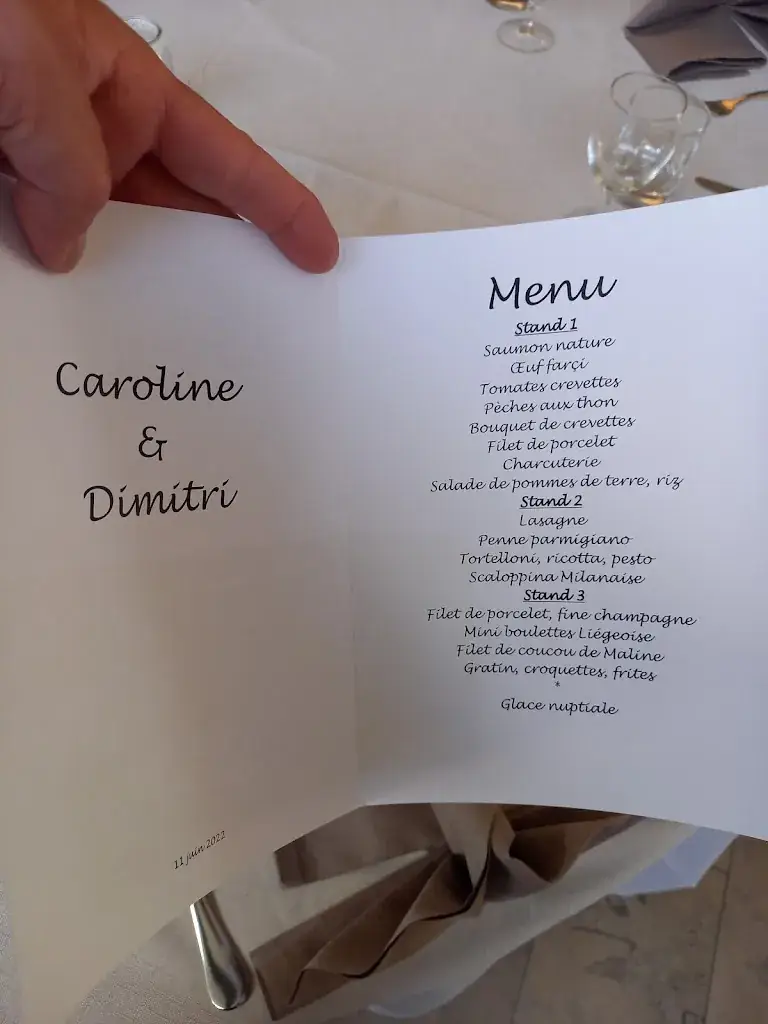 Caroline
&
Dimitri
11 juin 2022
Menu
Stand 1
Saumon nature
Œuf farçi
Tomates crevettes
Pèches aux thon
Bouquet de crevettes
Filet de porcelet
Charcuterie
Salade de pommes de terre, riz
Stand 2
Lasagne
Penne parmigiano
Tortelloni, ricotta, pesto
Scaloppina Milanaise
Stand 3
Filet de porcelet, fine champagne
Mini boulettes Liégeoise
Filet de coucou de Maline
Gratin, croquettes, frites
*
Glace nuptiale